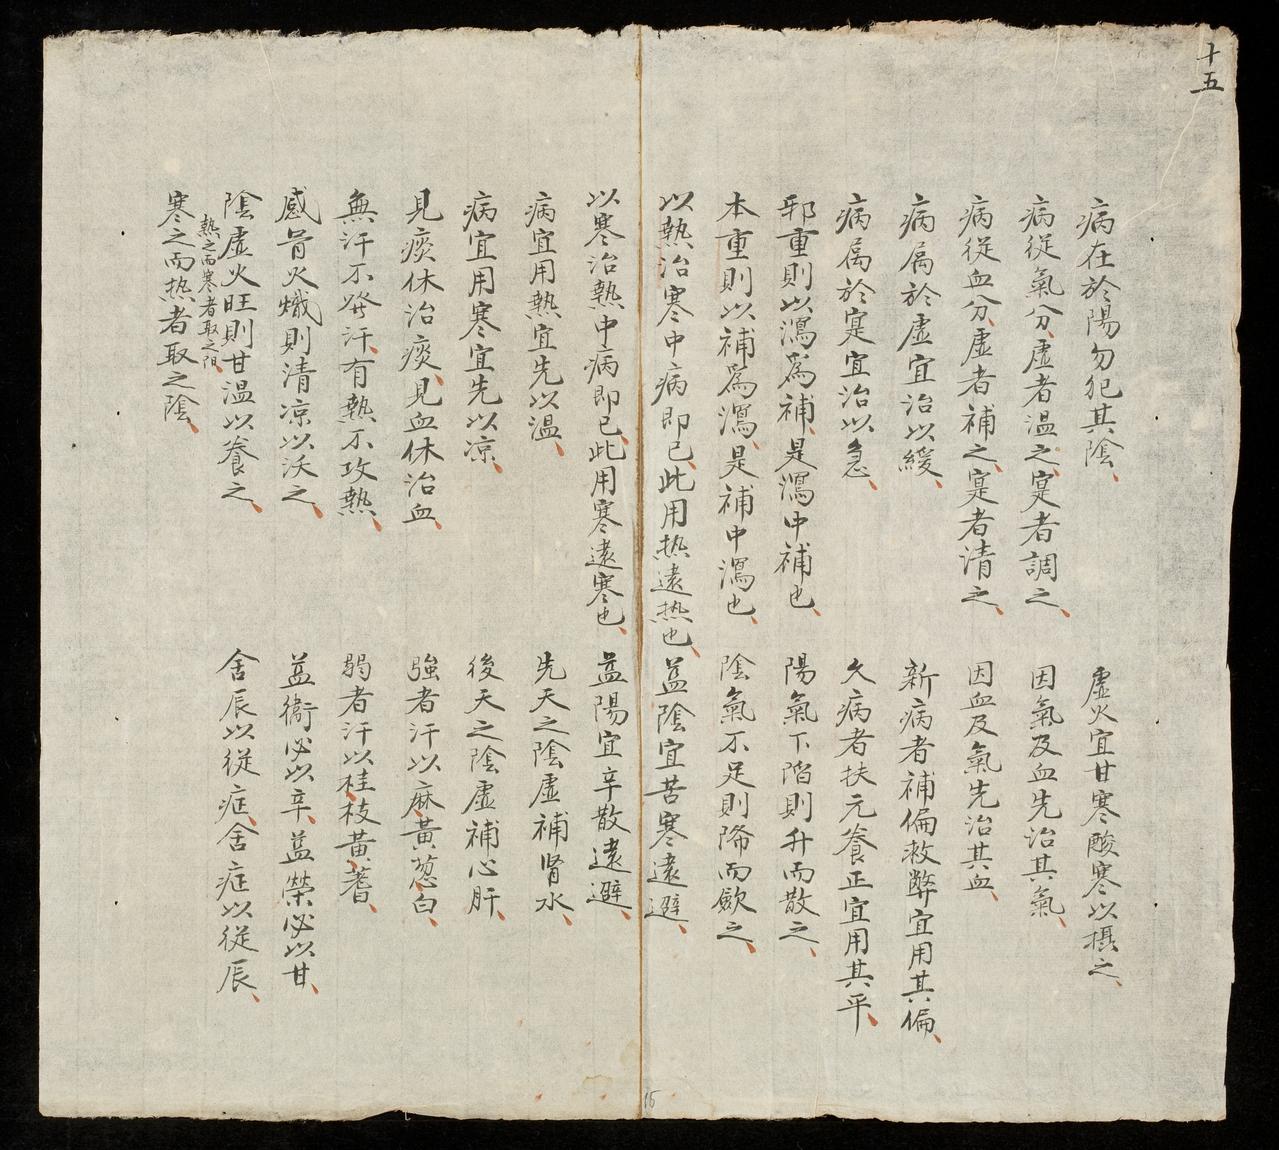 十五
病在於陽勿犯其陰、
病從氣分、虛者溫之、寔者調之、
病從血分、虛者補之、寔者清之、
病属於虛宜治以緩、
病属於寔宜治以急、
邪重則以瀉爲補、是瀉中補也、
本重則以補爲瀉、是補中瀉也、
以熱治寒中病即已、此用热遠热也、
以寒治熱中病即已、此用寒遠寒也、
病宜用熱宜先以温、
病宜用寒宜先以凉、
見痰休治痰、見血休治血、
無汗不發汗、有熱不攻熱、
感骨火熾則清凉以沃之、
陰虛火旺則甘温以養之、
熱之而寒者取之阳、
寒之而热者取之陰、
虛火宜甘寒酸寒以摄之、
因氣及血先治其氣、
因血及氣先治其血、
新病者補偏救弊宜用其偏、
久病者扶元養正宜用其平、
陽氣下陷則升而散之、
陰氣不足則降而歛之、
益陰宜苦寒遠避、
益陽宜辛散遠避、
先天之陰虛補肾水、
後天之陰虛補心肝、
強者汗以麻黃葱白、
弱者汗以桂枝黃蓍、
益衞必以辛、益榮必以甘、
舍辰以從症、舍症以從辰、
15